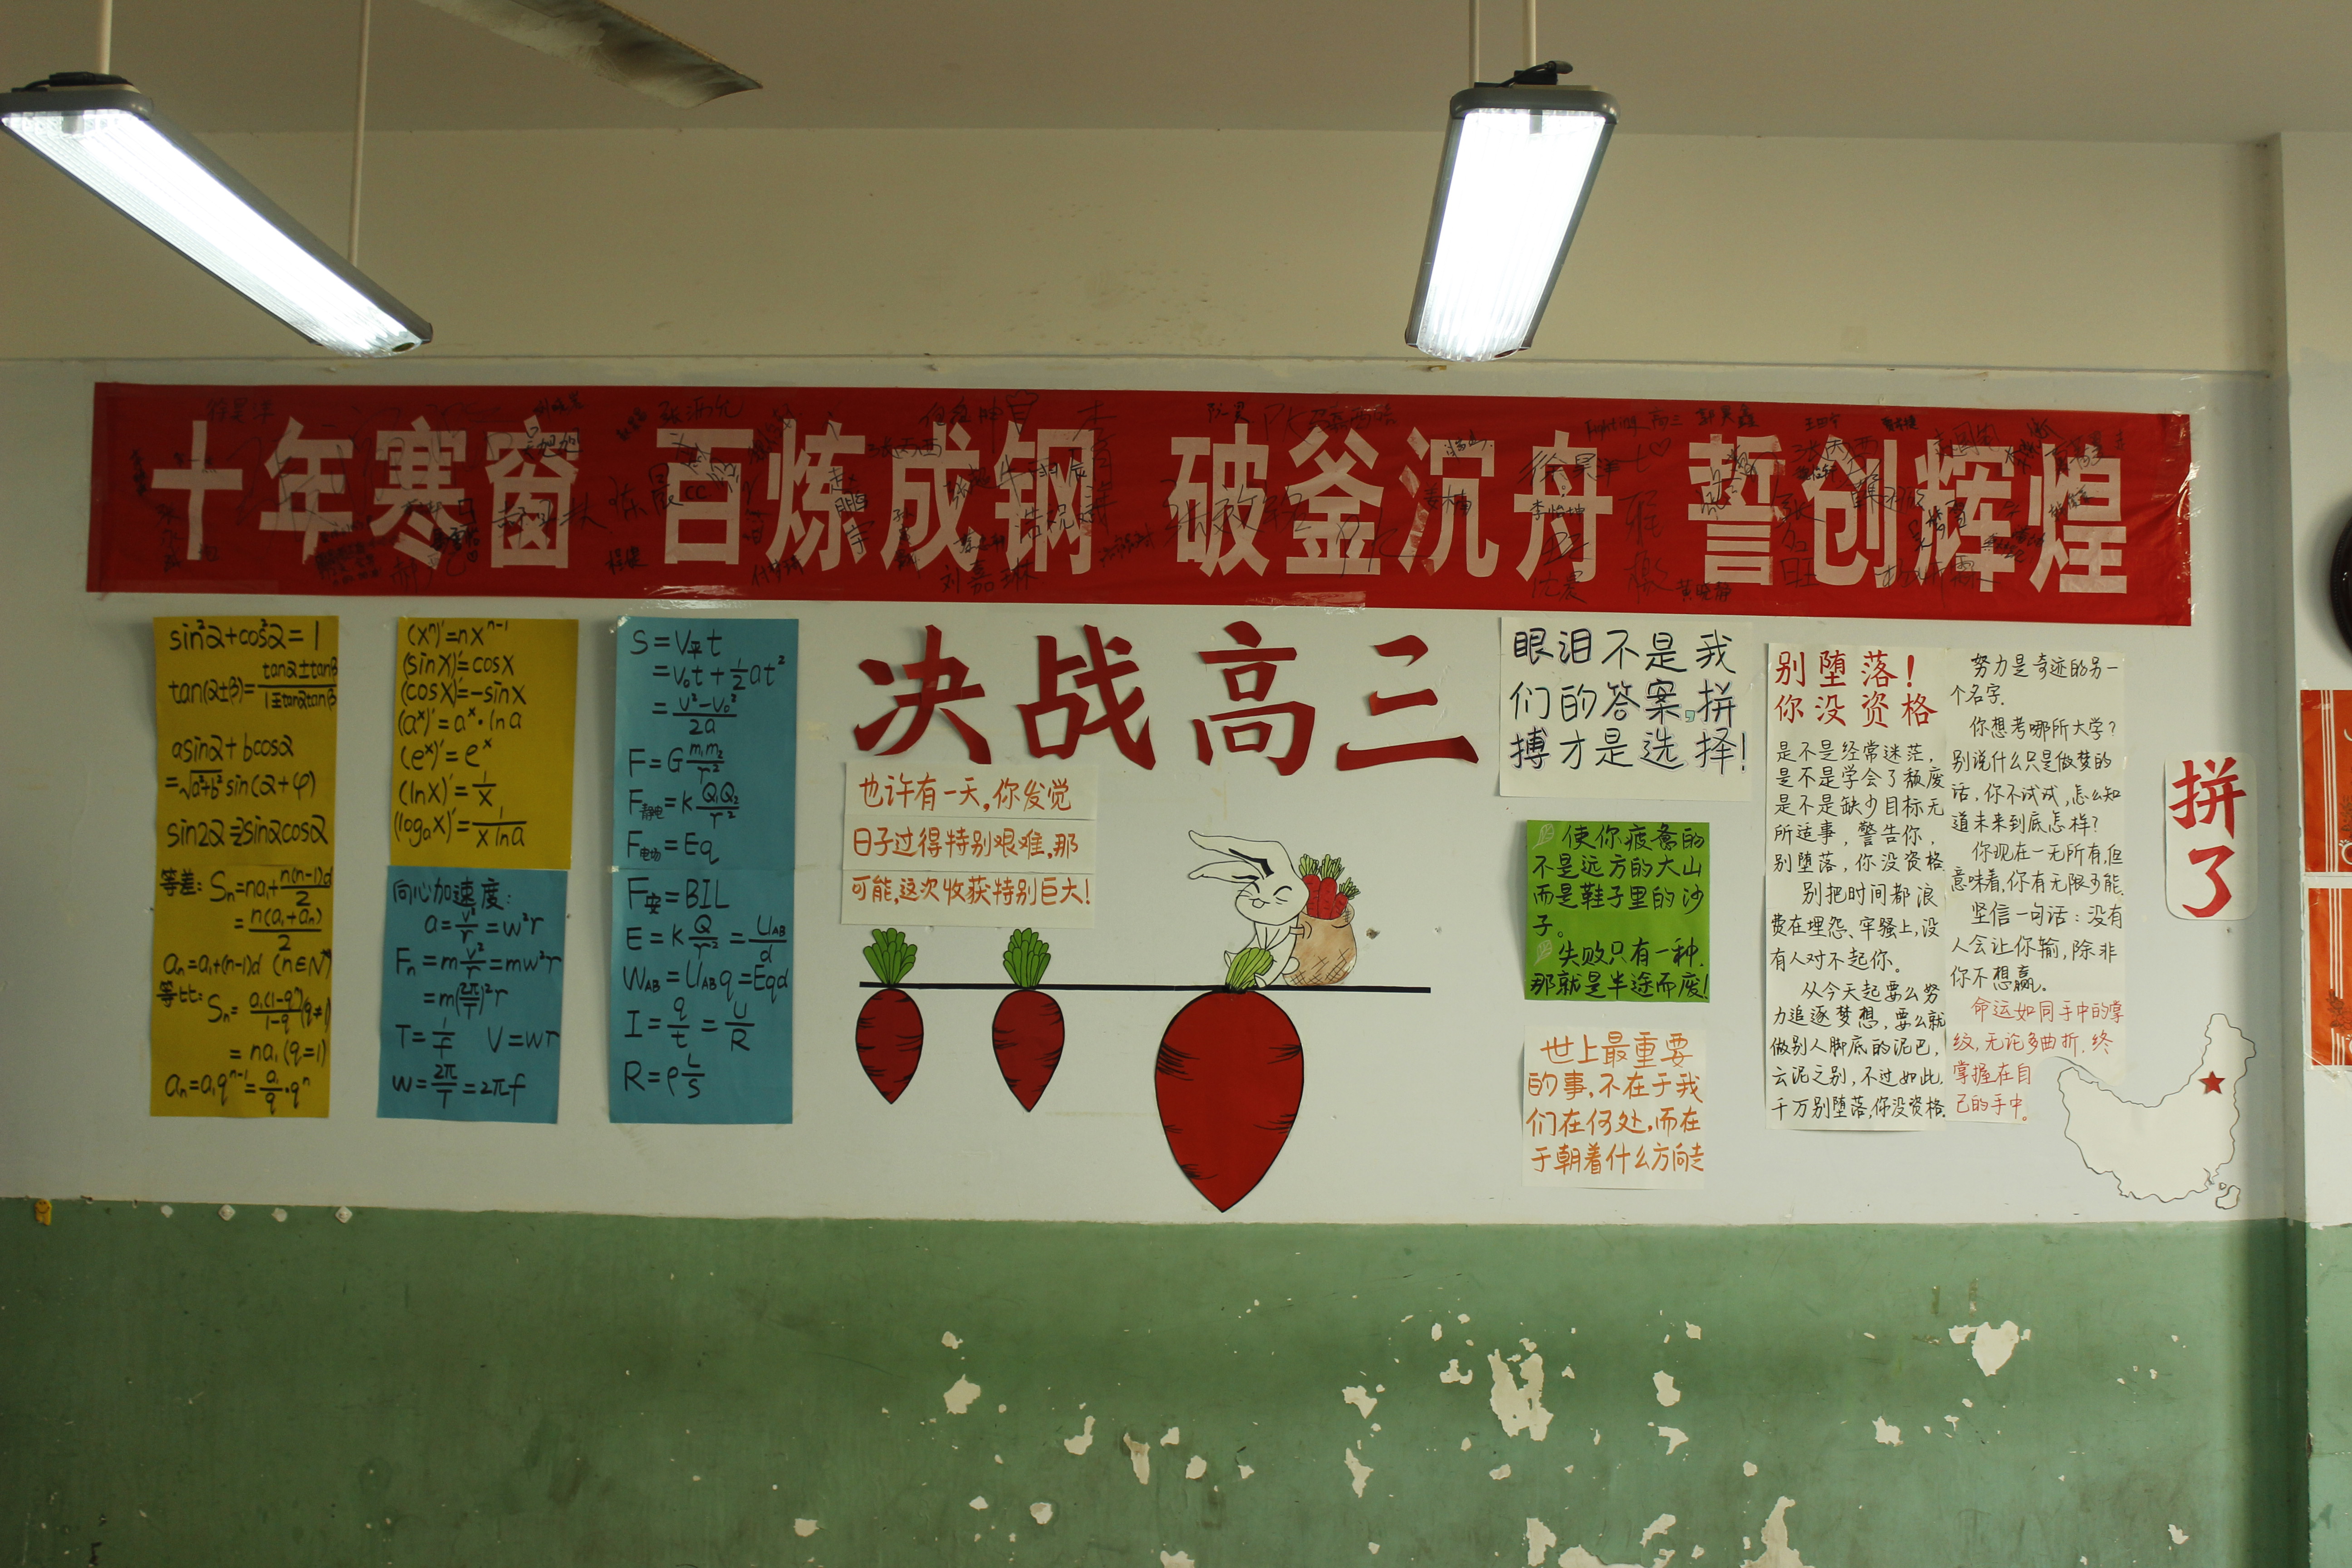 十年寒窗 百炼成钢 破釜沉舟 誓创辉煌
刘嘉琳
黄晓静
sin²α+cos²α=1
tan(α±β)=tanα±tanβ/1±tanαtanβ
asinα+bcosα
=√a²+b² sin(α+φ)
sin2α=2sinαcosα
等差: Sn=na₁+n(n-1)d/2
=n(a₁+an)/2
an=a₁+(n-1)d (n∈N*)
等比: Sn=a₁(1-qⁿ)/1-q (q≠1)
=na₁(q=1)
an=a₁qⁿ⁻¹=a₁/q·qⁿ
(xⁿ)'=nxⁿ⁻¹
(sinx)'=cosx
(cosx)'=-sinx
(aˣ)'=aˣ·lna
(eˣ)'=eˣ
(lnx)'=1/x
(logₐx)'=1/xlna
向心加速度:
a=v²/r=w²r
Fn=mv²/r=mw²r
=m(2π/T)²r
T=1/f V=wr
w=2π/T=2πf
S=V平t
=v₀t+½at²
=v²-v₀²/2a
F=Gm₁m₂/r²
F静电=kQ₁Q₂/r²
F电场=Eq
F安=BIL
E=kQ/r²=UAB/d
WAB=UABq=Eqd
I=q/t=U/R
R=ρL/S
决战高三
也许有一天,你发觉
日子过得特别艰难,那
可能,这次收获特别巨大!
眼泪不是我
们的答案,拼
搏才是选择!
使你疲惫的
不是远方的大山
而是鞋子里的沙
子。
失败只有一种.
那就是半途而废!
世上最重要
的事,不在于我
们在何处,而在
于朝着什么方向走
别堕落!
你没资格
是不是经常迷茫,
是不是学会了颓废
是不是缺少目标无
所适事,警告你,
别堕落,你没资格.
别把时间都浪
费在埋怨、牢骚上,没
有人对不起你。
从今天起要么努
力追逐梦想,要么就
做别人脚底的泥巴,
云泥之别,不过如此.
千万别堕落,你没资格.
努力是奇迹的另一
个名字.
你想考哪所大学?
别说什么只是做梦的
话,你不试试,怎么知
道未来到底怎样?
你现在一无所有,但
意味着,你有无限可能.
坚信一句话:没有
人会让你输,除非
你不想赢。
命运如同手中的掌
纹,无论多曲折,终
掌握在自
己的手中。
拼
了